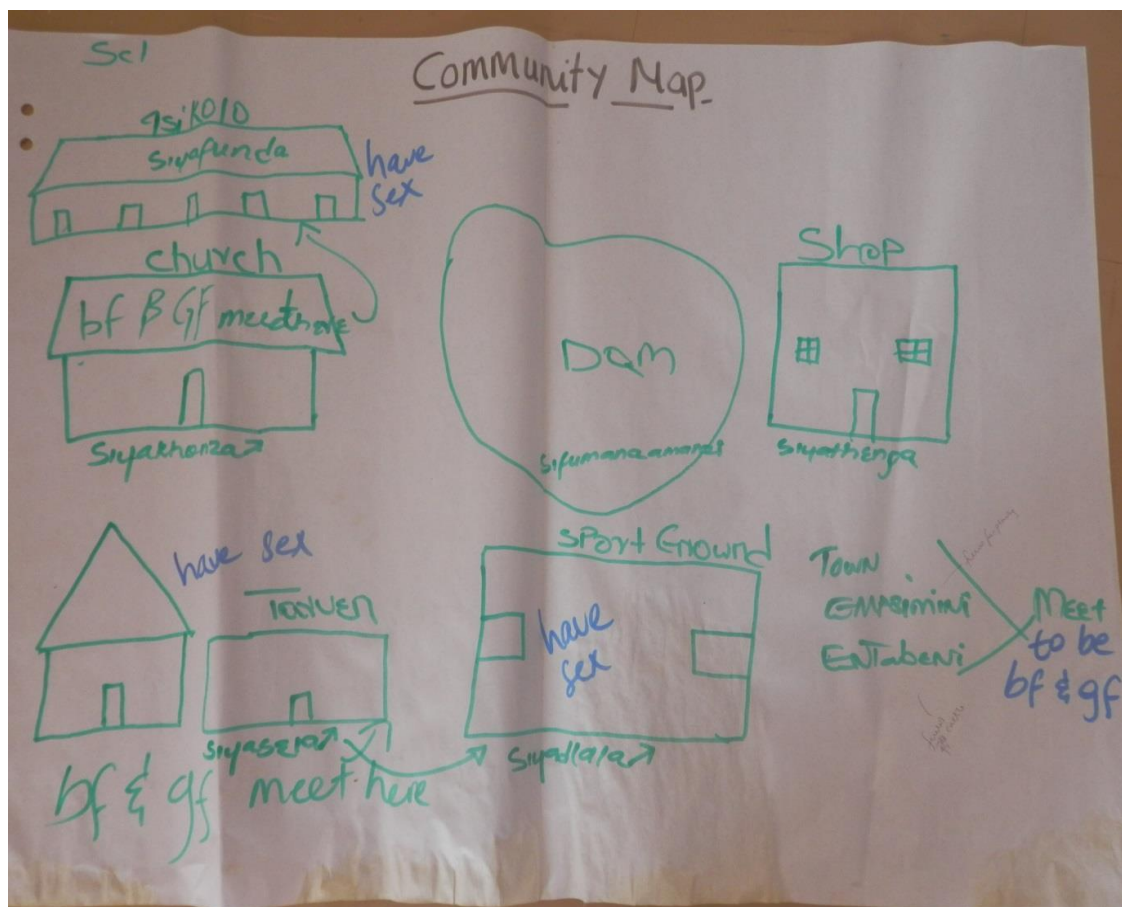 Sc1
Community Map
Isikolo
Siyafunda
have
sex
church
bf & GF meet here
Siyakhonza
Dam
Sifumana amanzi
Shop
Siyathenga
have sex
Siyasela
bf & gf meet here
Sport Ground
have
sex
Siyadlala
Town
EMASIMINI
ENTabeni
Meet
to be
bf & gf